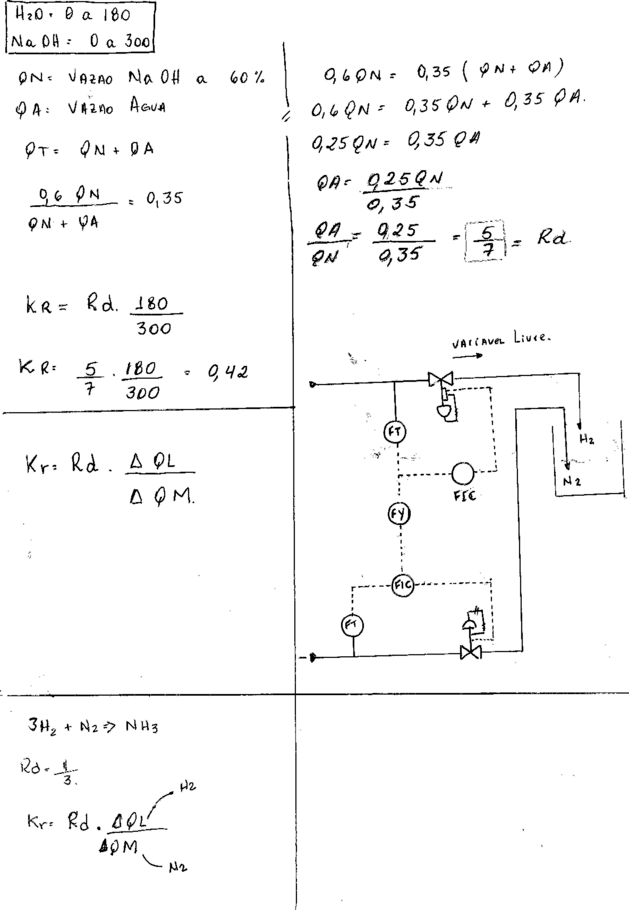 H2O = 0 a 180
NaOH = 0 a 300
QN = VAZAO NaOH a 60%
QA = VAZAO AGUA
QT = QN + QA
0,6 QN / QN + QA = 0,35
KR = Rd. 180 / 300
KR = 5/7 . 180/300 = 0,42
0,6QN = 0,35 (QN + QA)
0,6QN = 0,35QN + 0,35 QA.
0,25QN = 0,35 QA
QA = 0,25QN / 0,35
QA/QN = 0,25/0,35 = 5/7 = Rd.
Kr = Rd . Δ QL / Δ QM.
VARIAVEL Livre.
FT
H2
N2
FIC
FY
FIC
FT
3H2 + N2 => NH3
Rd = 1/3.
Kr = Rd . ΔQL / ΔQM
H2
N2